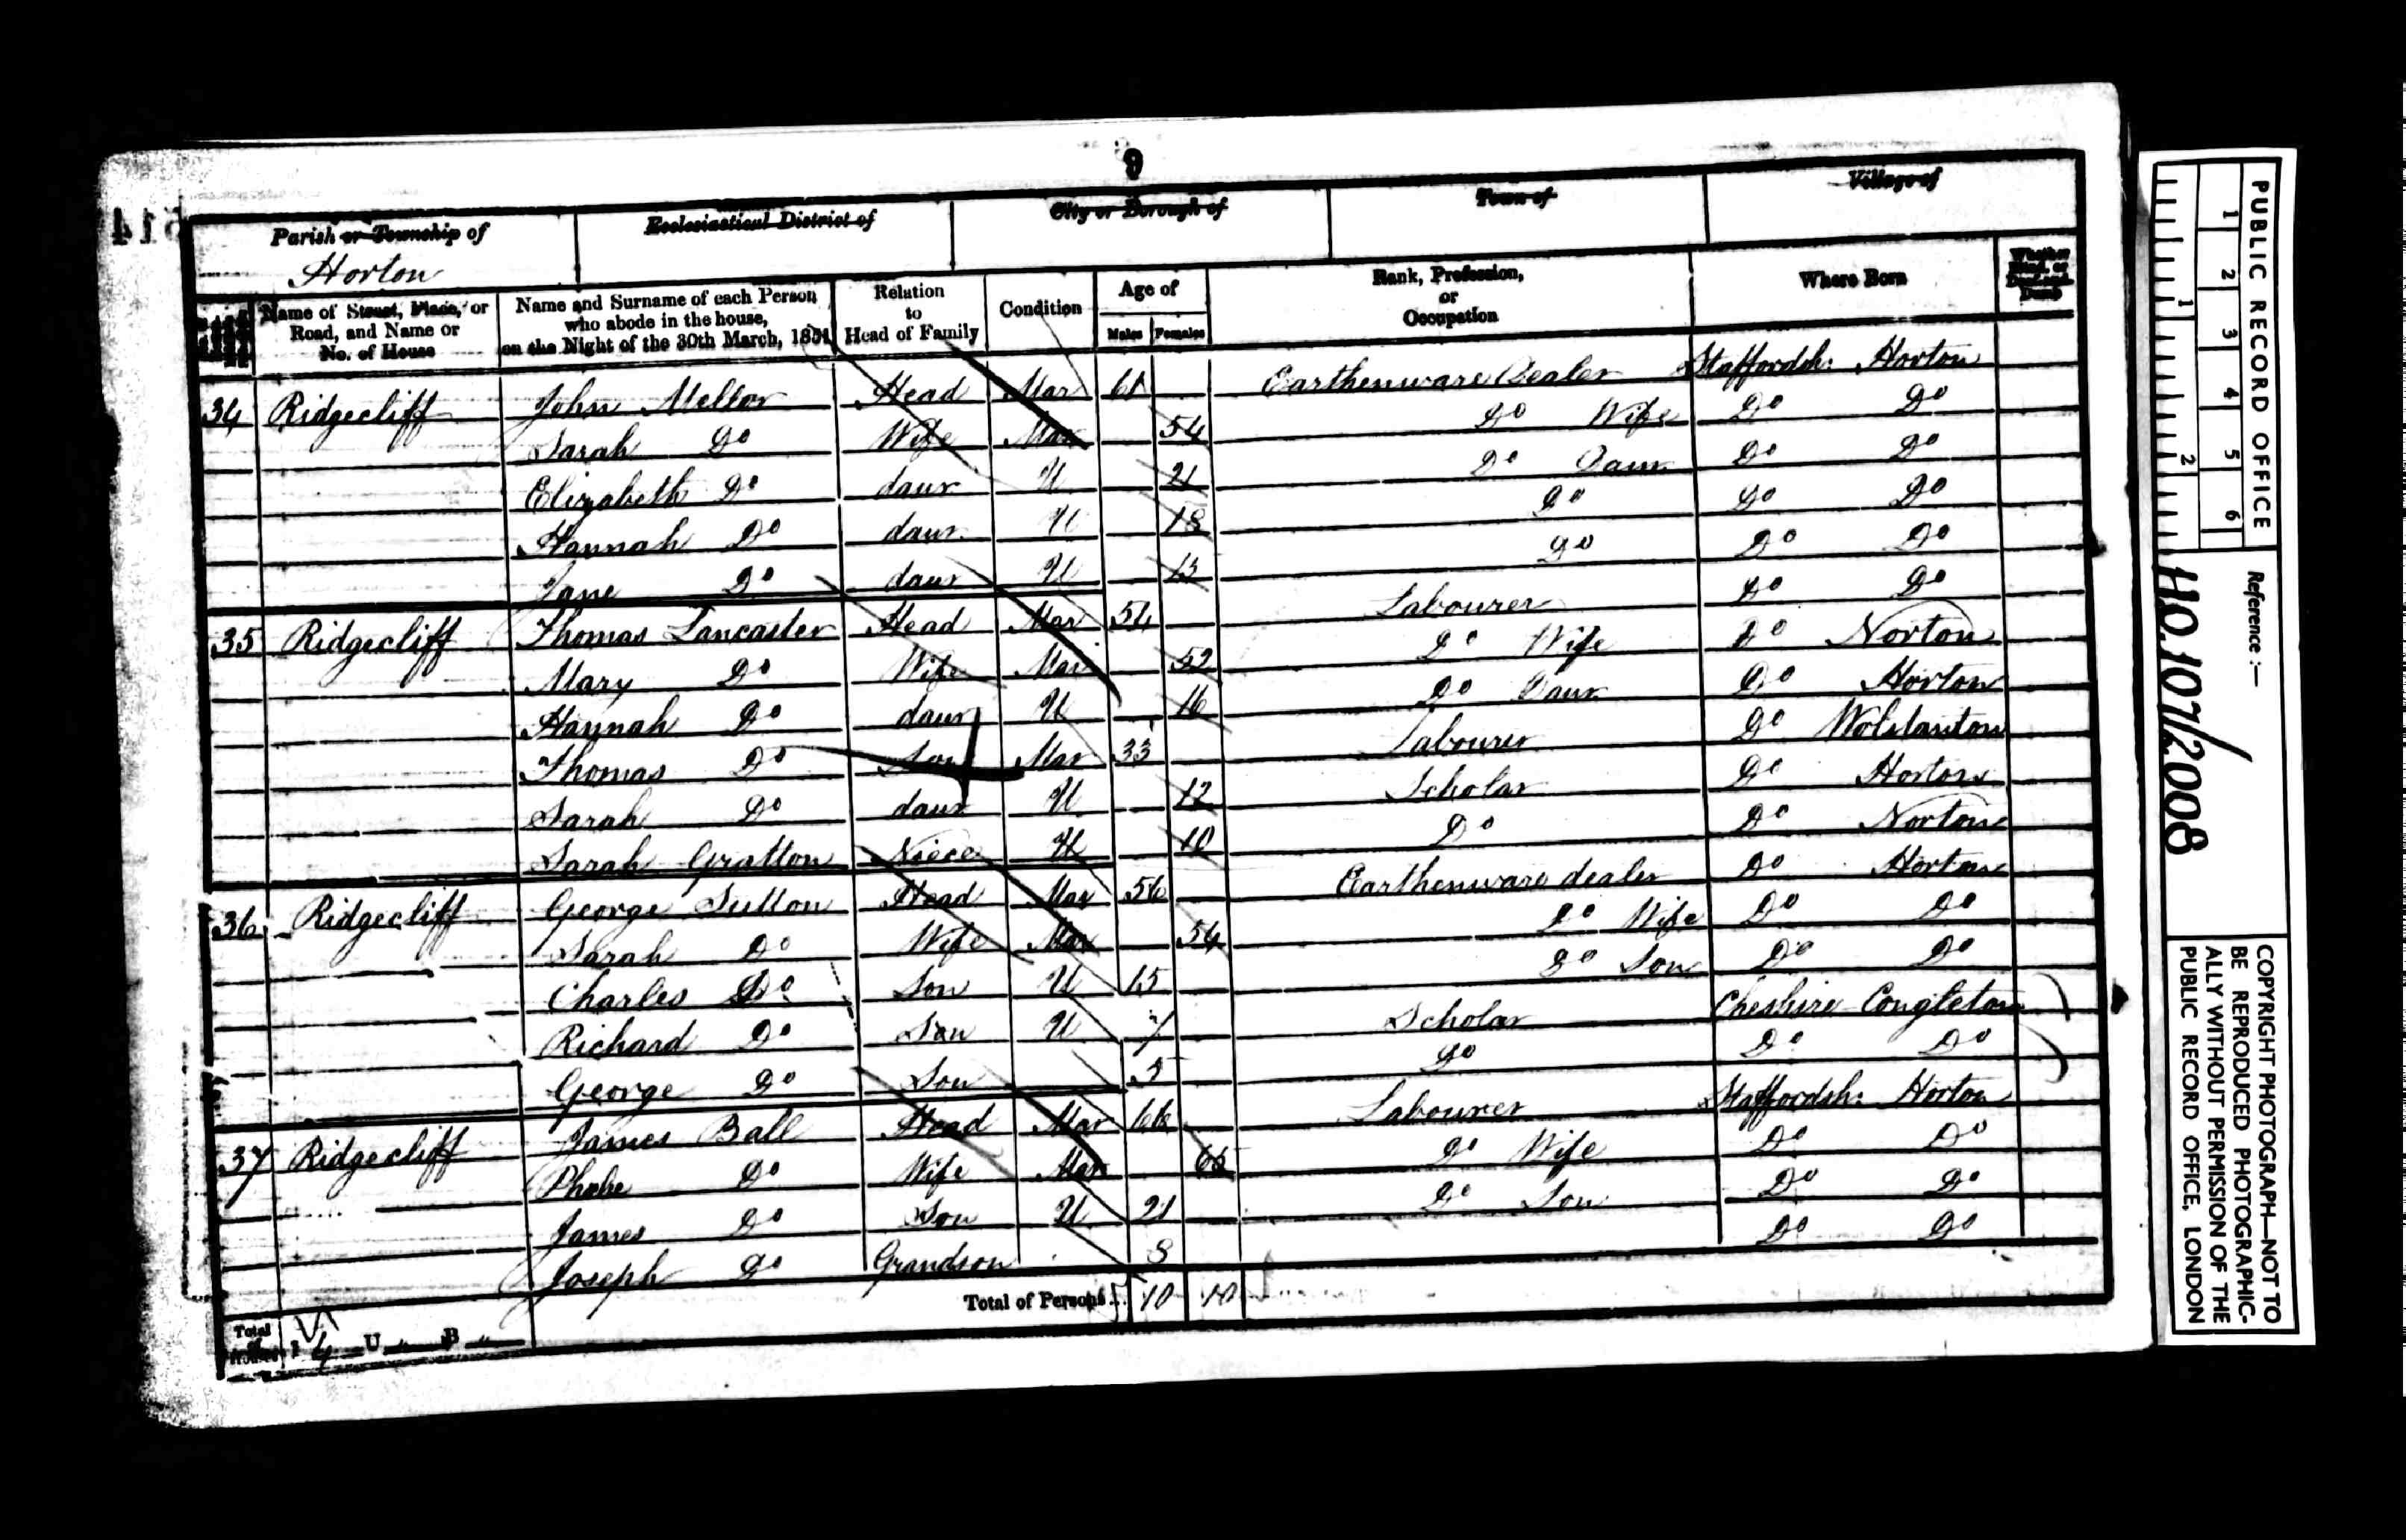 9
Parish or Township of
Horton
Ecclesiastical District of
City or Borough of
Town of
Village of
Name of Street, Place, or Road, and Name or No. of House
Name and Surname of each Person who abode in the house, on the Night of the 30th March, 1851
Relation to Head of Family
Condition
Age of
Males Females
Rank, Profession, or Occupation
Where Born
Whether Blind, or Deaf-and-Dumb
34 Ridgecliff John Mellor Head Mar 61 Earthenware Dealer Staffordsh: Horton
Sarah Do Wife Mar 54 Do Wife Do Do
Elizabeth Do daur U 21 Do Daur Do Do
Hannah Do daur U 18 Do Do Do
Jane Do daur U 13 Do Do Do
35 Ridgecliff Thomas Lancaster Head Mar 54 Labourer Do Do
Mary Do Wife Mar 52 Do Wife Do Norton
Hannah Do daur U 16 Do Daur Do Horton
Thomas Do Son Mar 33 Labourer Do Wolstanton
Sarah Do daur U 12 Scholar Do Horton
Sarah Gratton Niece U 10 Do Do Norton
36 Ridgecliff George Sutton Head Mar 56 Earthenware dealer Do Horton
Sarah Do Wife Mar 54 Do Wife Do Do
Charles Do Son U 15 Do Son Do Do
Richard Do Son U 7 Scholar Cheshire Congleton
George Do Son 5 Do Do Do
37 Ridgecliff James Ball Head Mar 66 Labourer Staffordsh: Horton
Phobe Do Wife Mar Do Wife Do Do
James Do Son U 21 Do Son Do Do
Joseph Do Grandson 8 Do Do
Total of Persons... 10 10
Total Houses I 4 U " B "
PUBLIC RECORD OFFICE
1 2 3 4 5 6
1 2
Reference :—
H.O. 107/2008
COPYRIGHT PHOTOGRAPH—NOT TO
BE REPRODUCED PHOTOGRAPHIC-
ALLY WITHOUT PERMISSION OF THE
PUBLIC RECORD OFFICE, LONDON